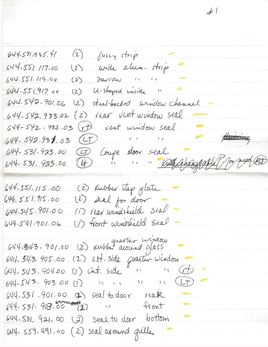 #1
644.531.925.41 (2) fuzzy strip
644.551.117.00 (2) wide alum. strip
644.551.119.00 (2) narrow " "
644.551.917.00 (2) U-shaped inside "
644.542.901.26 (2) steel-backed window channel
644.542.933.02 (2) rear vent window seal
644-542-932.03 (rt) vent window seal
644.542.931.03 (LT)
644.531.923.00 (LT) Coupe door seal
644-531.923.00
644.551.115.00 (2) Rubber step plate
644.551.915.00 (2) seal for door
644.545.901.00 (1) rear windshield seal
644.541.901.06 (1) front windshield seal
quarter window
644.543.901.00 (2) rubber around glass
644.543.905.00 (2) Ext. side quarter window
644.543.904.00 (1) int. side " " (rt)
644.543.903.00 (1) " " " (LT)
644.531.901.00 (2) seal to door rear
644.531.903.00 (2) " " front
644.531.921.00 (2) seal to door bottom
644.559.491.00 (2) seal around grille